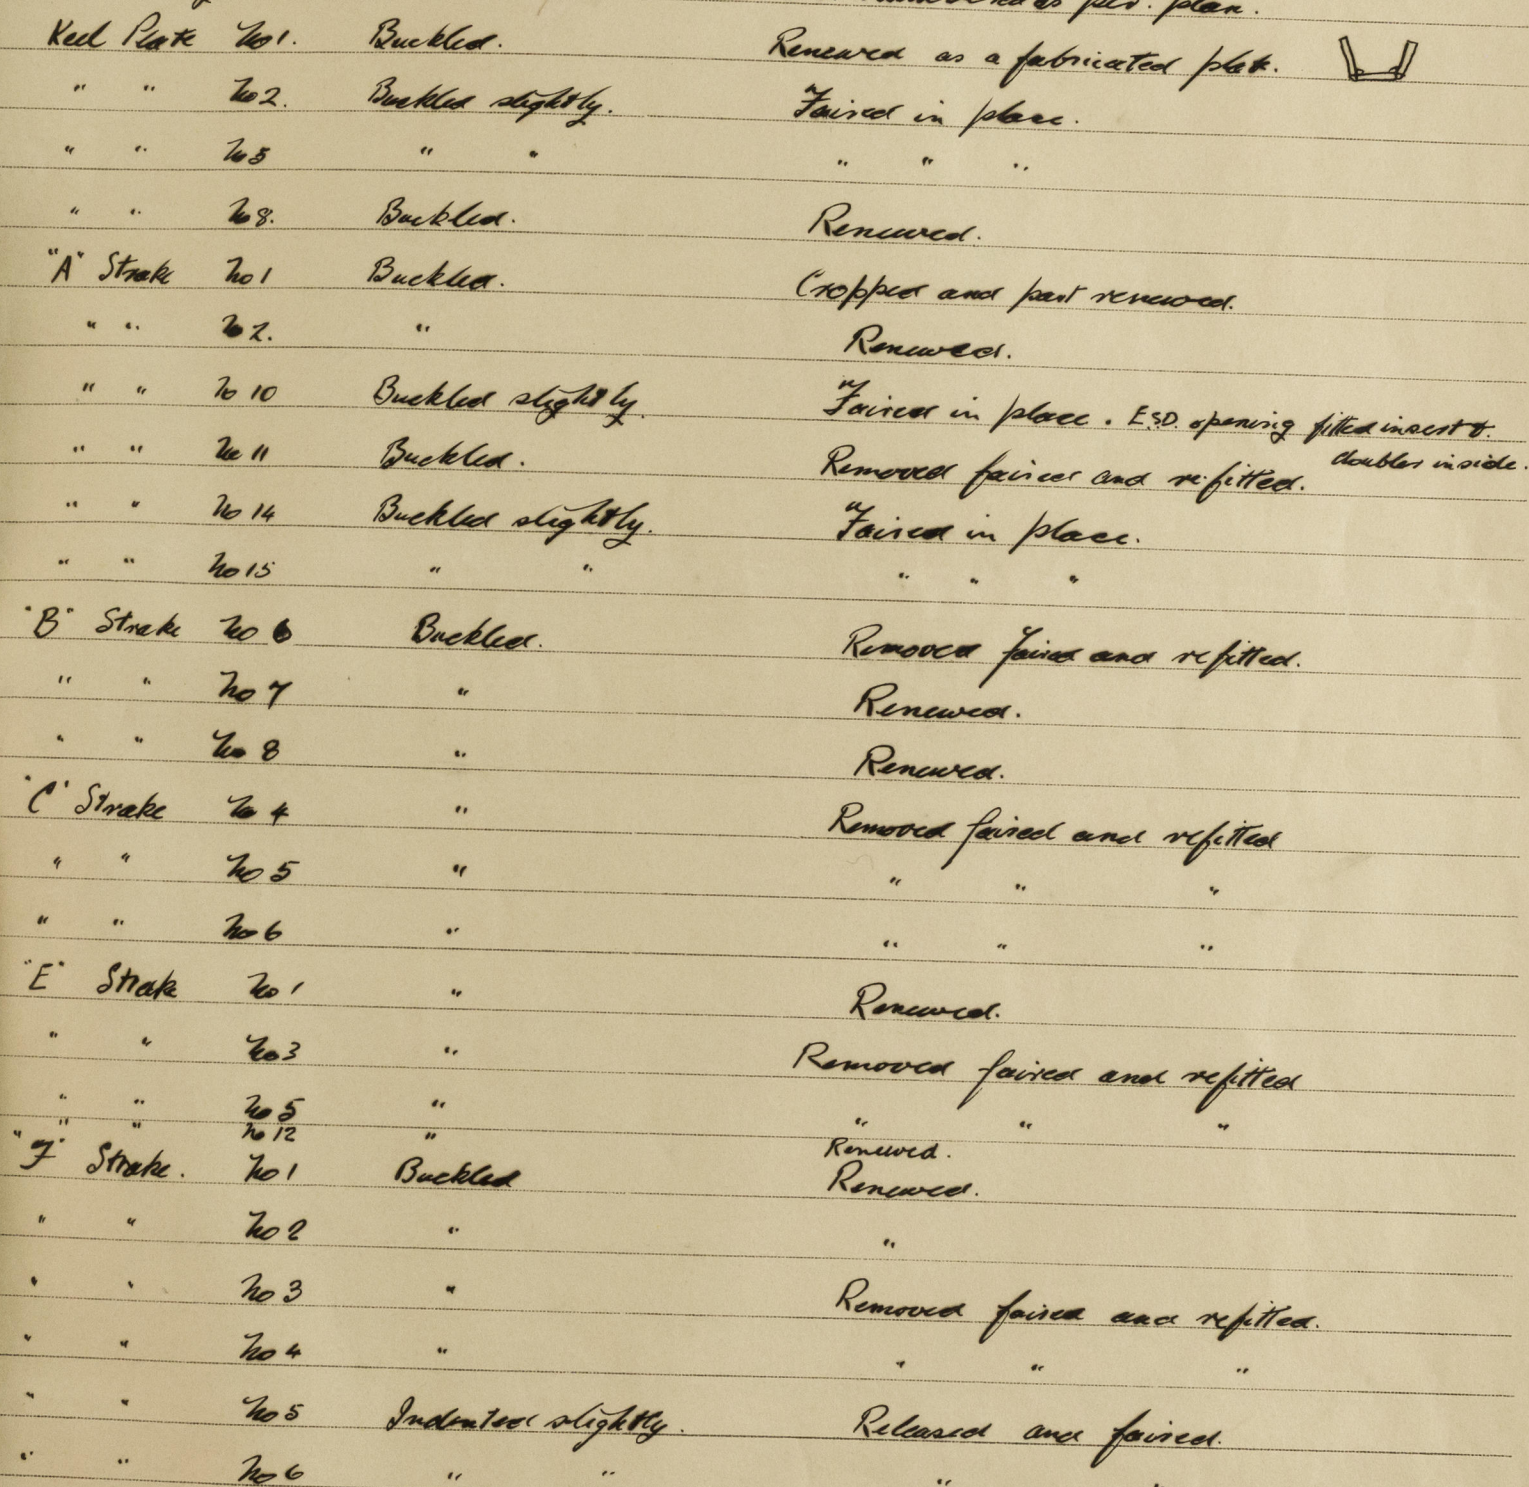 as per. plan.
Keel Plate No 1. Buckled. Renewed as a fabricated plate.
" " No 2. Buckled slightly. Faired in place.
" " No 5 " " " " "
" " No 8. Buckled. Renewed.
"A" Strake No 1 Buckled. Cropped and part renewed.
" " No 2. " Renewed.
" " No 10 Buckled slightly. Faired in place. E.S.D. opening fitted insert &
doubler inside.
" " No 11 Buckled. Removed faired and refitted.
" " No 14 Buckled slightly. Faired in place.
" " No 15 " " " " "
"B" Strake No 6 Buckled. Removed faired and refitted.
" " No 7 " Renewed.
" " No 8 " Renewed.
"C" Strake No 4 " Removed faired and refitted
" " No 5 " " " "
" " No 6 " " " "
"E" Strake No 1 " Renewed.
" " No 3 " Removed faired and refitted
" " No 5 " " " "
" " No 12 " Renewed.
"F" Strake. No 1 Buckled Renewed.
" " No 2 " "
" " No 3 " Removed faired and refitted.
" " No 4 " " " "
" " No 5 Indented slightly. Released and faired.
" " No 6 " " " "